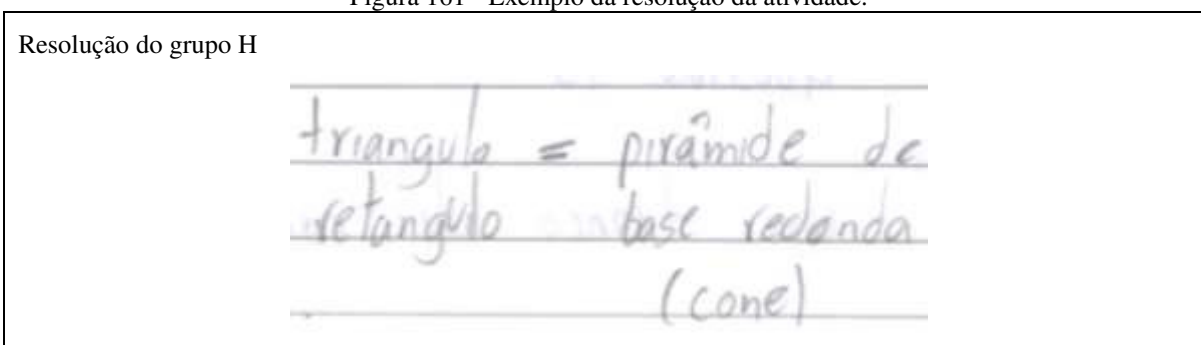 Figura 161 - Exemplo da resolução da atividade.
Resolução do grupo H
triangulo = pirâmide de
retangulo base redonda
(cone)